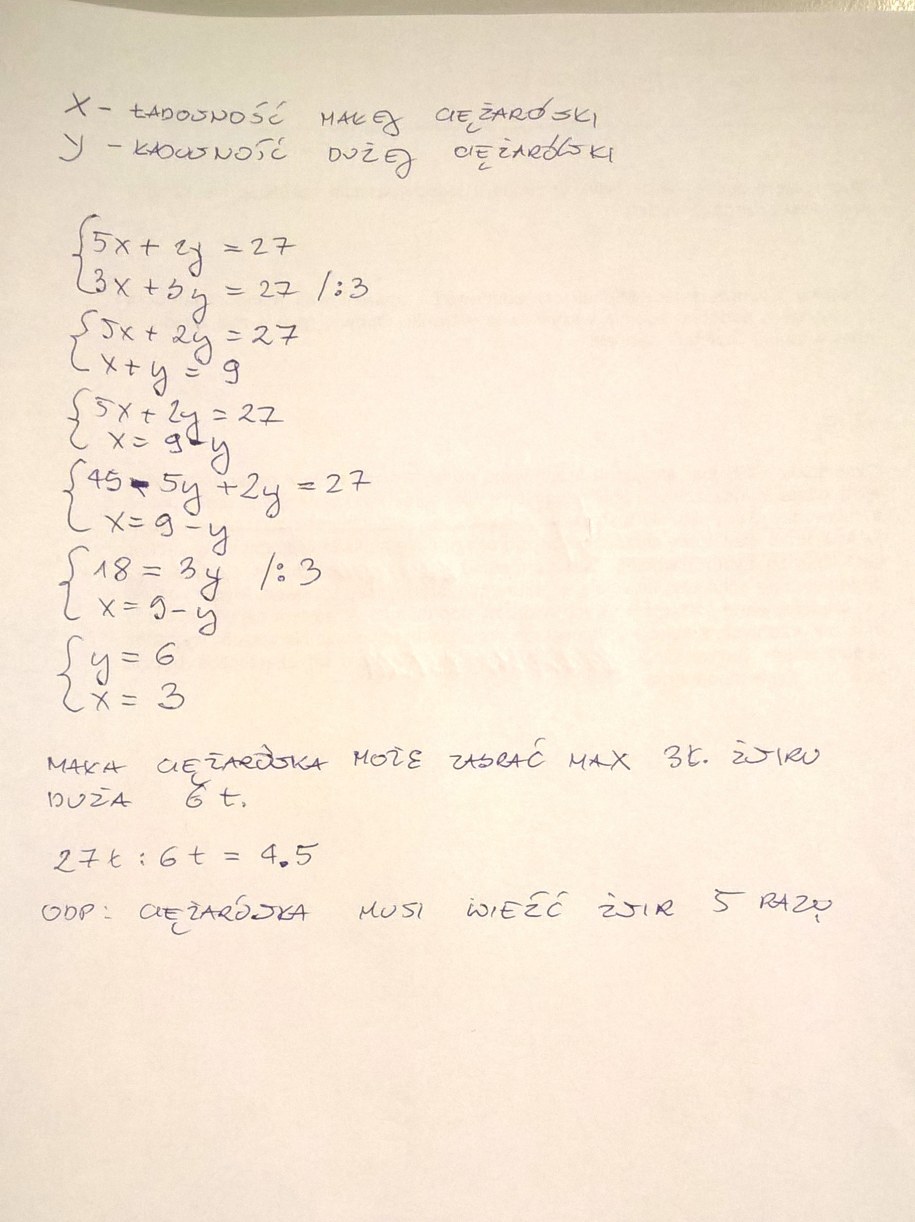 X - ŁADOWNOŚĆ MAŁEJ CIĘŻARÓWKI
y - ŁADOWNOŚĆ DUŻEJ CIĘŻARÓWKI
{5x + 2y = 27
{3x + 3y = 27 /:3
{5x + 2y = 27
{x + y = 9
{5x + 2y = 27
{x = 9 - y
{45 - 5y + 2y = 27
{x = 9 - y
{18 = 3y /:3
{x = 9 - y
{y = 6
{x = 3
MAŁA CIĘŻARÓWKA MOŻE ZABRAĆ MAX 3t. ŻWIRU
DUŻA 6 t.
27t : 6t = 4.5
ODP: CIĘŻARÓWKA MUSI WIEŹĆ ŻWIR 5 RAZY